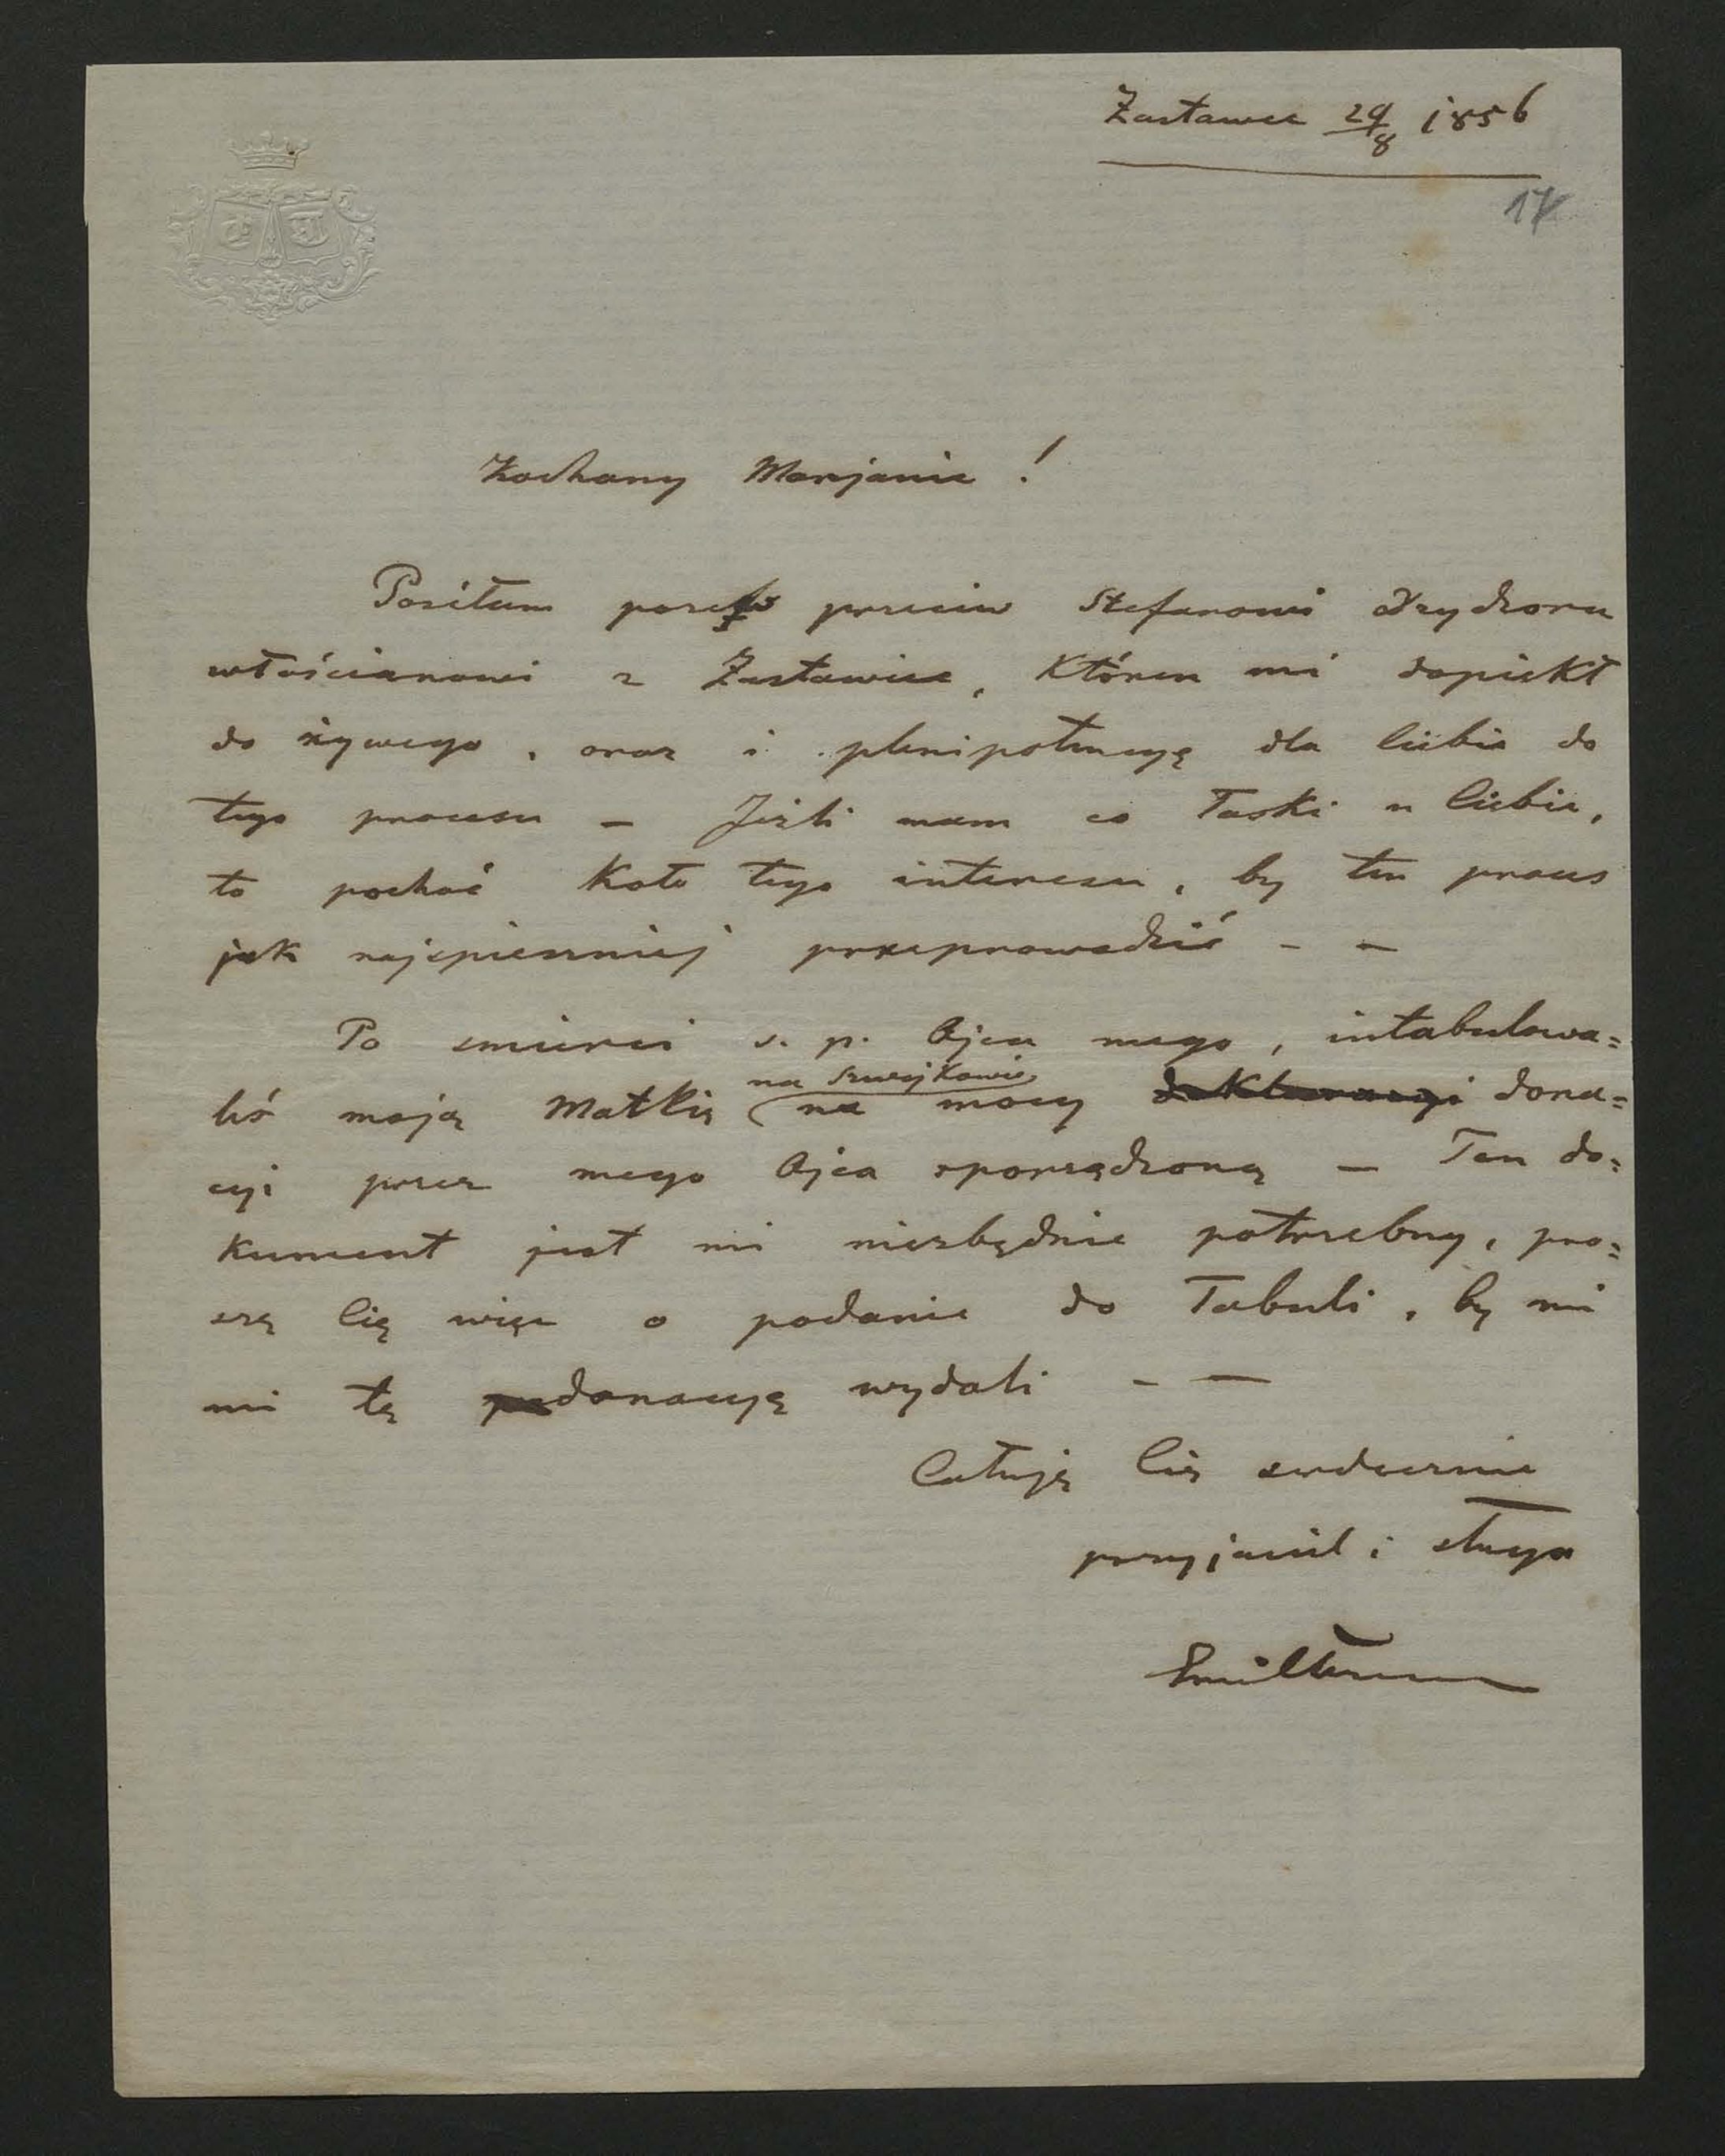 Zastawce 29/8 1856
17
Kochany Marjanie!
Posiłam pozew przeciw Stefanowi
włościanowi z Zastawiec, któren mi dopiekł
do żywego, oraz i plenipotencyę dla Ciebie do
tego procesu — Jeżli mam co łaski u Ciebie,
to pochoć koło tego interesu, by ten proces
jak najspieszniej przeprowadzić - —
Po smierci s. p. Ojca mego, intabulowa=
na Szwejkowie
liś moją Matkię (na mocy deklaracyi dona=
cyi przez mego Ojca sporządzoną — Ten do=
kument jest mi niezbędnie potrzebny, pro=
szę Cię więc o podanie do Tabuli, by mi
mi tę donacyję wydali - —
Całuję Cię serdecznie
przyjaciel i sługa